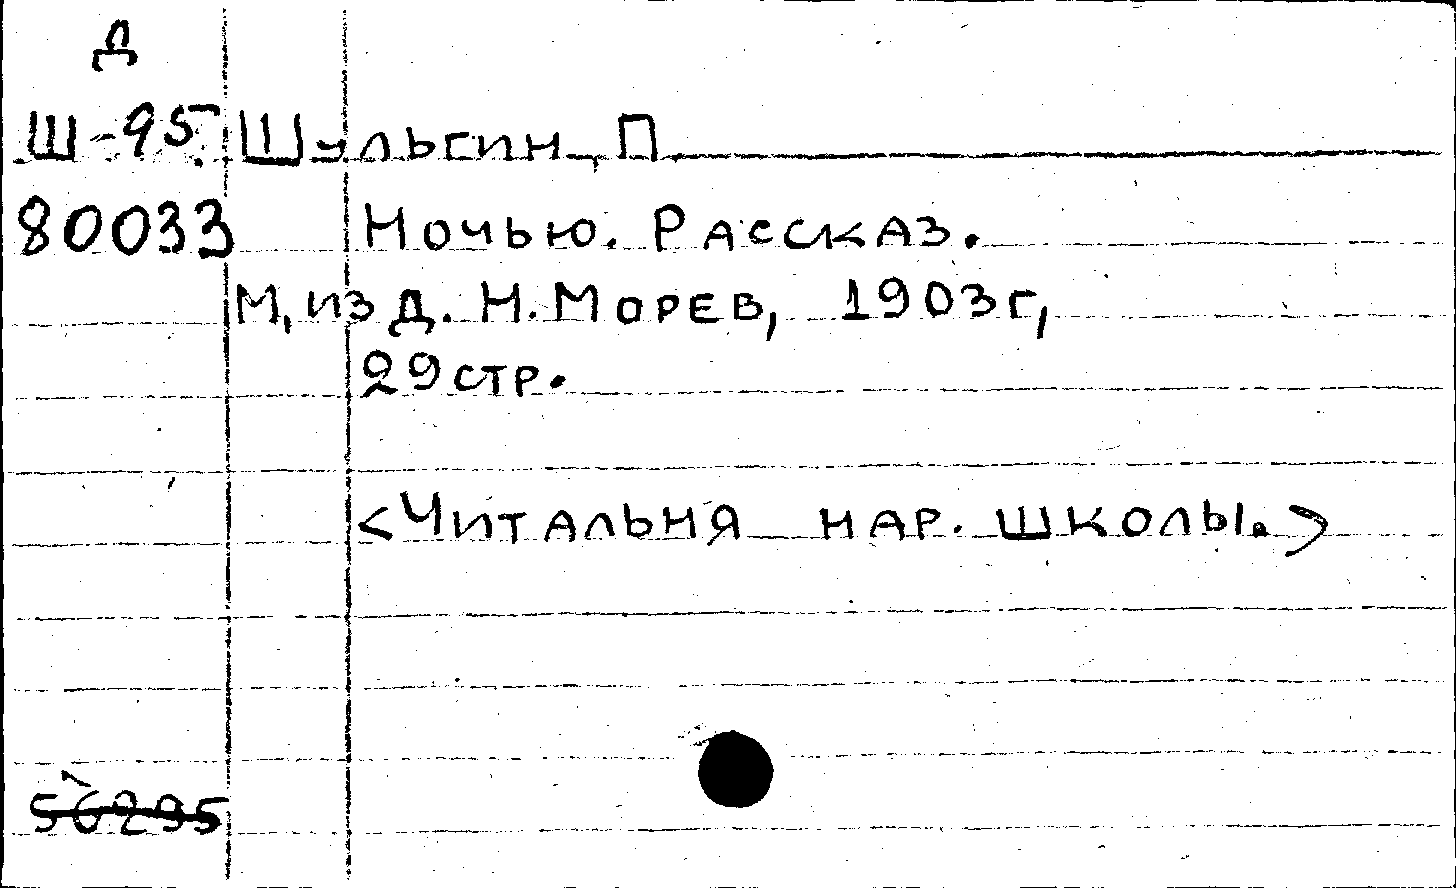 Д
Ш-95 Шульгин, П.
80033 Ночью. Рассказ.
М, изд. Н. Морев, 1903г,
29 стр.
<Читальня нар. школы.>
56295